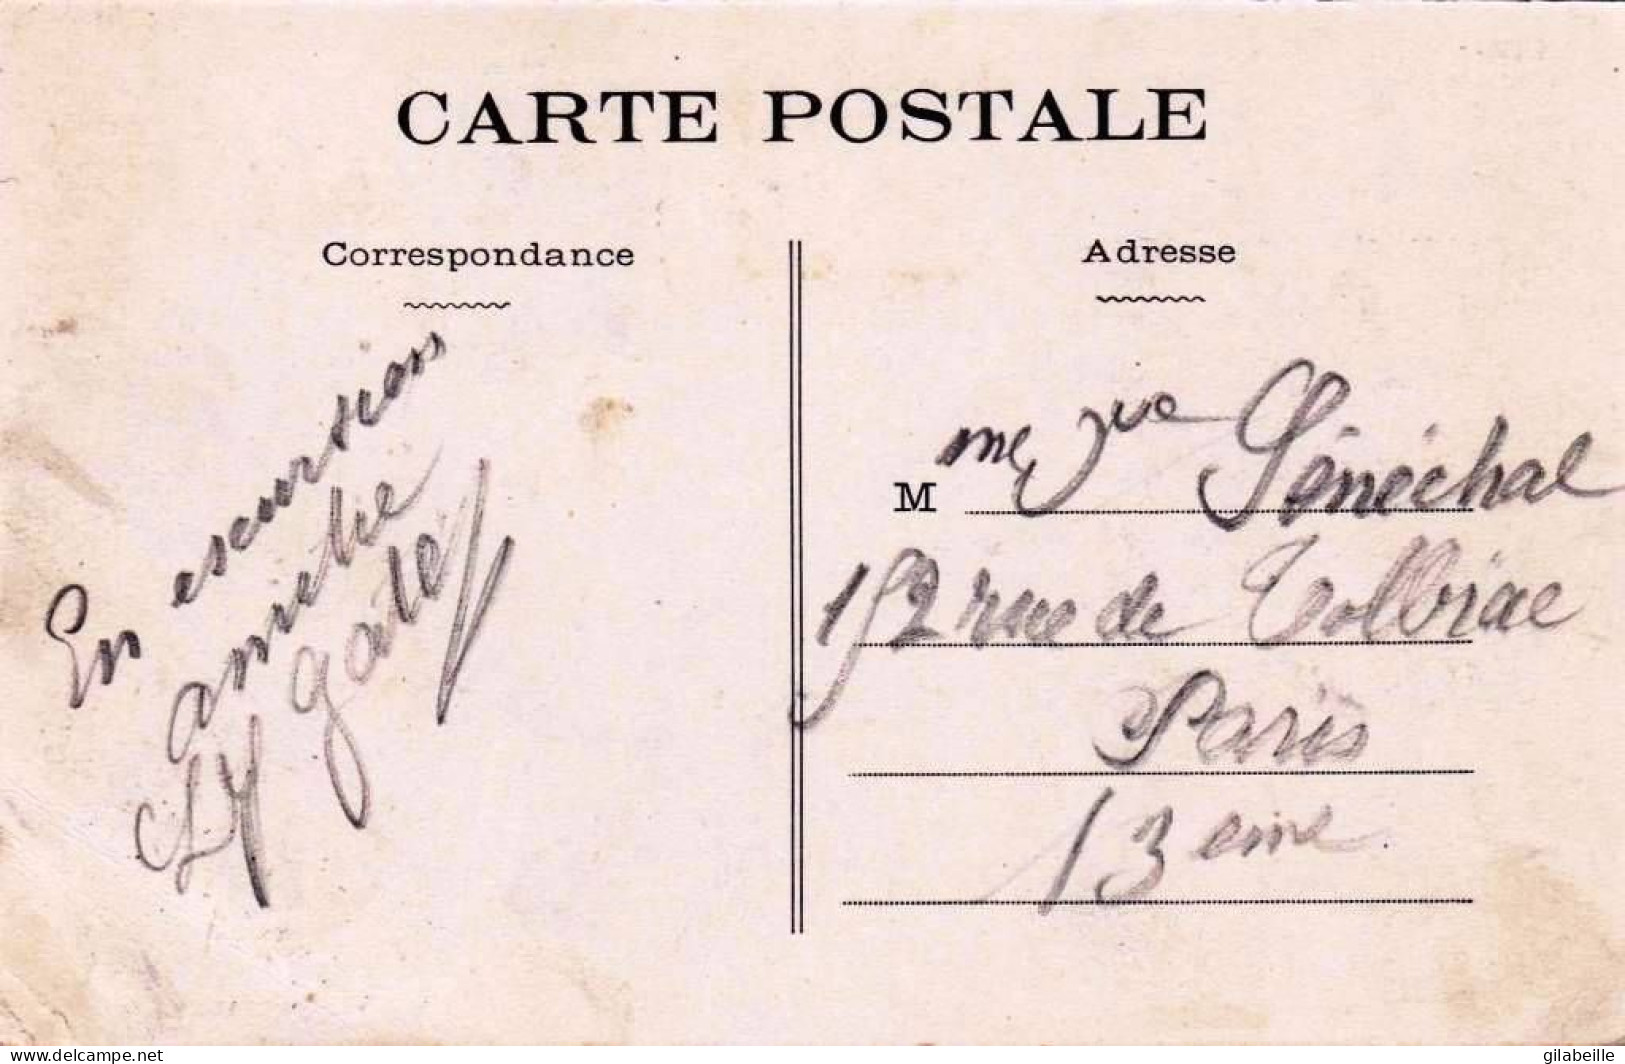 CARTE POSTALE
Correspondance
Adresse
En escursion
amitié
M me Vve Sénéchal
152 rue de Tolbiac
Paris
13 eme
www.delcampe.net
gilabeille